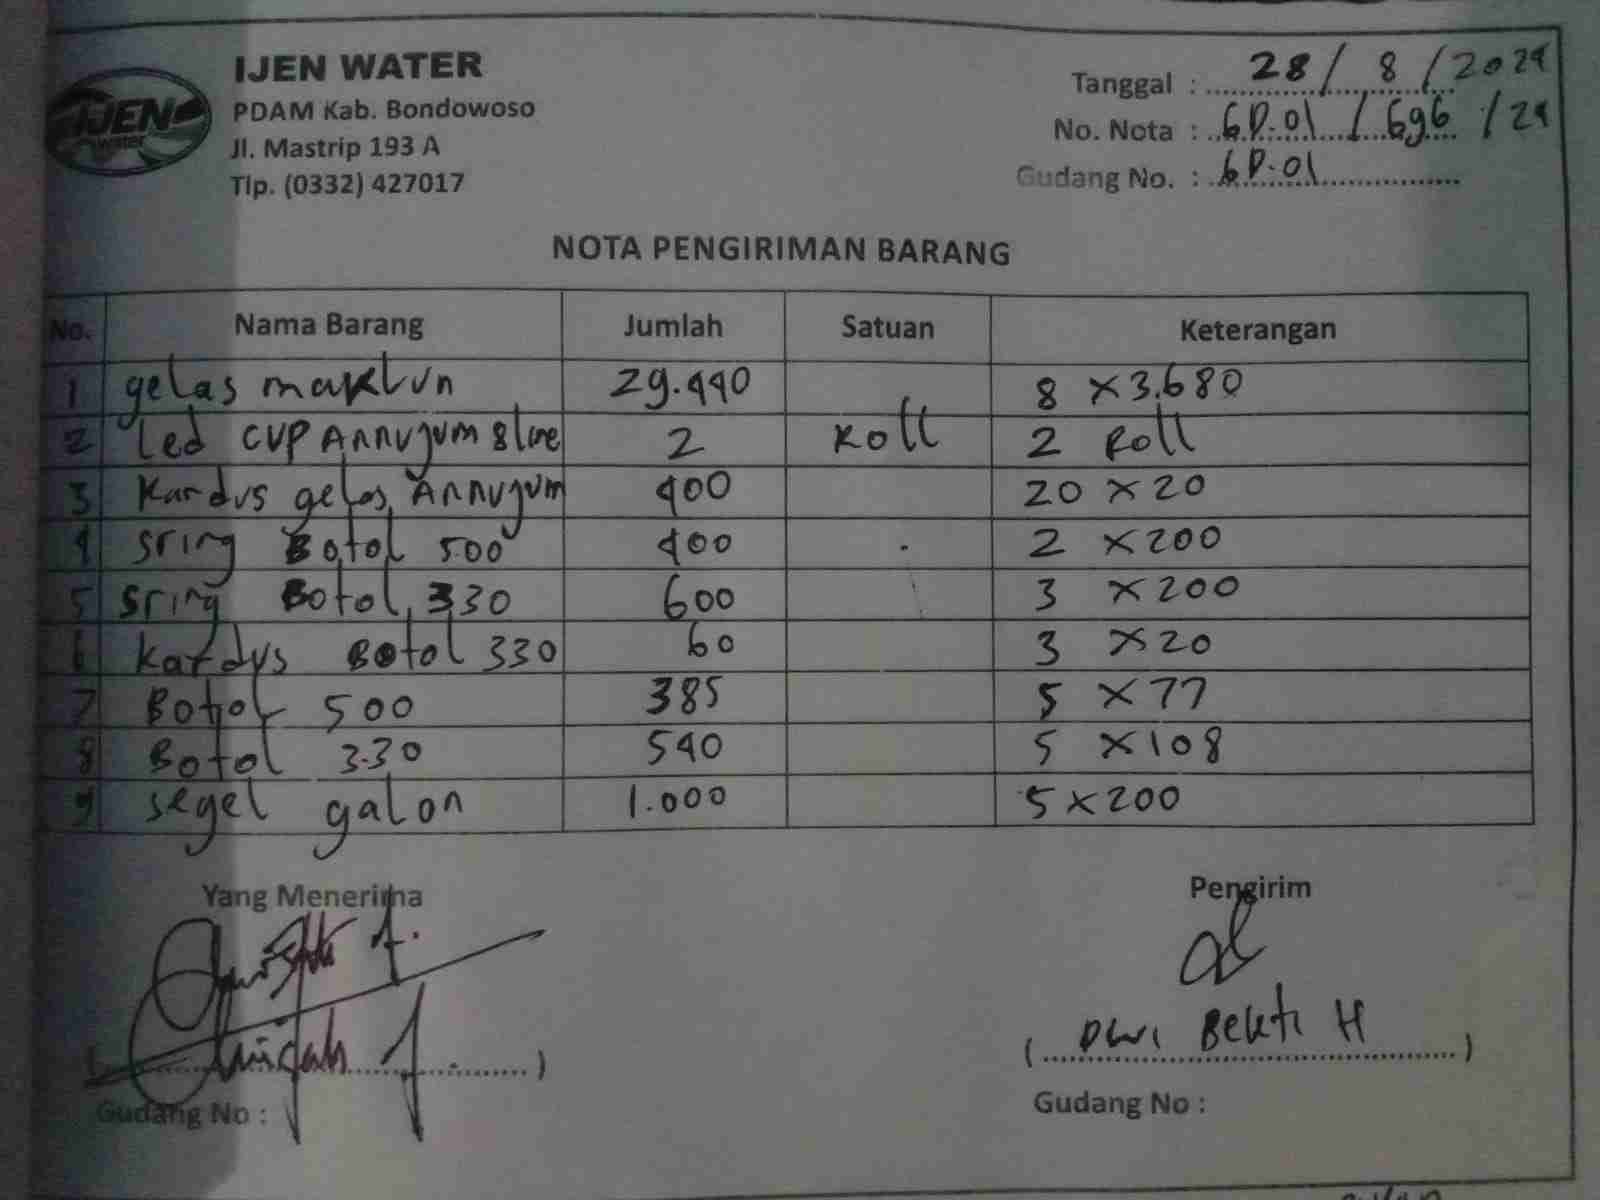 IJEN WATER
IJEN
water
PDAM Kab. Bondowoso
Jl. Mastrip 193 A
Tlp. (0332) 427017
Tanggal : 28 / 8 / 2024
No. Nota : GD.01 / 696 / 24
Gudang No. : GD.01
NOTA PENGIRIMAN BARANG
No. Nama Barang Jumlah Satuan Keterangan
1 gelas maklun 29.440 8 x 3.680
2 Led CUP Annujum 8 line 2 Roll 2 Roll
3 Kardus gelas Annujum 400 20 x 20
4 sring Botol 500 400 2 x 200
5 sring Botol 330 600 3 x 200
6 kardus Botol 330 60 3 x 20
7 Botol 500 385 5 x 77
8 Botol 330 540 5 x 108
9 segel galon 1.000 5 x 200
Yang Menerima Pengirim
( ) ( Dwi Bekti H )
Gudang No : Gudang No :